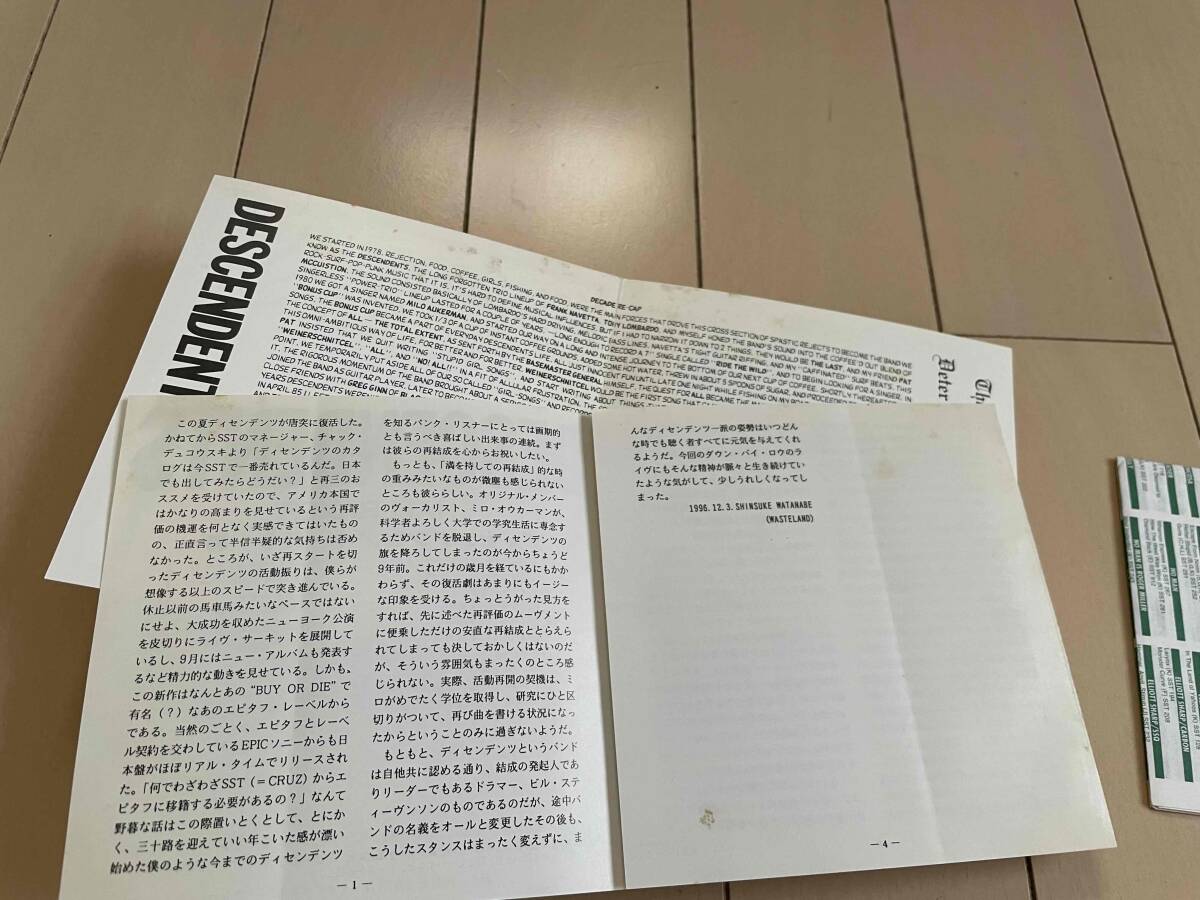 DESCENDENT
DECADE RE-CAP
WE STARTED IN 1978. REJECTION, FOOD, COFFEE, GIRLS, FISHING, AND FOOD, WERE THE MAIN FORCES THAT DROVE THIS CROSS SECTION OF SPASTIC REJECTS TO BECOME THE BAND WE
KNOW AS THE DESCENDENTS. THE LONG FORGOTTEN TRIO LINEUP OF FRANK NAVETTA, TONY LOMBARDO, AND MYSELF HONED THE BAND'S SOUND INTO THE COFFEE'D OUT BLEND OF
ROCK-SURF-POP-PUNK MUSIC THAT IT IS. IT'S HARD TO DEFINE MUSICAL INFLUENCES, BUT IF I HAD TO NARROW IT DOWN TO 2 THINGS, THEY WOULD BE THE LAST, AND MY FRIEND PAT
MCCUISTION. THE SOUND CONSISTED BASICALLY OF LOMBARDO'S HARD DRIVING, MELODIC BASS LINES, NAVETTA'S TIGHT GUITAR RIFFING, AND MY "CAFFINATED" SURF BEATS. THIS
SINGERLESS "POWER-TRIO" LINEUP LASTED FOR A COUPLE OF YEARS. --LONG ENOUGH TO RECORD A 7" SINGLE CALLED "RIDE THE WILD", AND TO BEGIN LOOKING FOR A SINGER. IN
1980 WE GOT A SINGER NAMED MILO AUKERMAN, AND STARTED OUR WAY ON A LONG AND INTENSE JOURNEY TO THE BOTTOM OF OUR NEXT CUP OF COFFEE. SHORTLY THEREAFTER,
"BONUS CUP" WAS INVENTED. WE TOOK 1/3 OF A CUP OF INSTANT COFFEE GROUNDS, ADDED SOME HOT WATER, THREW IN ABOUT 5 SPOONS OF SUGAR, AND PROCEEDED
SONGS. THE BONUS CUP BECAME A PART OF EVERYDAY DESCENDENTS LIFE. ALL JUST INNOCENT FUN UNTIL LATE ONE NIGHT WHILE FISHING ON MY
THE CONCEPT OF ALL — THE TOTAL EXTENT. AS SENT FORTH BY THE BASEMASTER GENERAL HIMSELF, THE QUEST FOR ALL BECAME THE
THIS OMNI-AMBITIOUS WAY OF LIFE, FOR BETTER AND FOR BETTER. WEINERSCHNITCEL WOULD BE THE FIRST SONG THAT
PAT INSISTED THAT WE QUIT WRITING "STUPID GIRL SONGS" AND START WRITING ABOUT THINGS
"WEINERSCHNITCEL", "ALL", AND "NO! ALL!!" IN A FIT OF ALLLLAR FRUSTRATION, THE
POINT. WE TEMPORARILY PUT ASIDE ALL OF OUR SO CALLED "GIRL-SONGS" AND
IT. THE RIGOROUS MOMENTUM OF THE BAND BROUGHT ABOUT A
JOINED THE BAND AS GUITAR PLAYER, LATER TO BECOME
CLOSE FRIENDS WITH GREG GINN OF
YEARS DESCENDENTS WERE
IN APRIL 85 I LEFT
Th
Peter
この夏ディセンデンツが唐突に復活した。
かねてからSSTのマネージャー、チャック・
デュコウスキより「ディセンデンツのカタ
ログは今SSTで一番売れているんだ。日本
でも出してみたらどうだい？」と再三のお
ススメを受けていたので、アメリカ本国で
はかなりの高まりを見せているという再評
価の機運を何となく実感できてはいたもの
の、正直言って半信半疑的な気持ちは否め
なかった。ところが、いざ再スタートを切
ったディセンデンツの活動振りは、僕らが
想像する以上のスピードで突き進んでいる。
休止以前の馬車馬みたいなペースではない
にせよ、大成功を収めたニューヨーク公演
を皮切りにライヴ・サーキットを展開して
いるし、9月にはニュー・アルバムも発表す
るなど精力的な動きを見せている。しかも、
この新作はなんとあの“BUY OR DIE”で
有名（？）なあのエピタフ・レーベルから
である。当然のごとく、エピタフとレーベ
ル契約を交わしているEPICソニーからも日
本盤がほぼリアル・タイムでリリースされ
た。「何でわざわざSST（＝CRUZ）からエ
ピタフに移籍する必要があるの？」なんて
野暮な話はこの際置いとくとして、とにか
く、三十路を迎えていい年こいた感が漂い
始めた僕のような今までのディセンデンツ
— 1 —
を知るパンク・リスナーにとっては画期的
とも言うべき喜ばしい出来事の連続。まず
は彼らの再結成を心からお祝いしたい。
もっとも、「満を持しての再結成」的な時
の重みみたいなものが微塵も感じられない
ところも彼ららしい。オリジナル・メンバー
のヴォーカリスト、ミロ・オウカーマンが、
科学者よろしく大学での学究生活に専念す
るためバンドを脱退し、ディセンデンツの
旗を降ろしてしまったのが今からちょうど
9年前。これだけの歳月を経ているにもかか
わらず、その復活劇はあまりにもイージー
な印象を受ける。ちょっとうがった見方を
すれば、先に述べた再評価のムーヴメント
に便乗しただけの安直な再結成ととらえら
れてしまっても決しておかしくはないのだ
が、そういう雰囲気もまったくのところ感
じられない。実際、活動再開の契機は、ミ
ロがめでたく学位を取得し、研究にひと区
切りがついて、再び曲を書ける状況になっ
たからということのみに過ぎないようだ。
もともと、ディセンデンツというバンド
は自他共に認める通り、結成の発起人であ
りリーダーでもあるドラマー、ビル・ステ
ィーヴンソンのものであるのだが、途中バ
ンドの名義をオールと変更したその後も、
こうしたスタンスはまったく変えずに、ま
んなディセンデンツ一派の姿勢はいつどん
な時でも聴く者すべてに元気を与えてくれ
るようだ。今回のダウン・バイ・ロウのラ
イヴにもそんな精神が脈々と生き続けてい
たような気がして、少しうれしくなってし
まった。
1996. 12. 3. SHINSUKE WATANABE
(WASTELAND)
— 4 —
NO MAN IS ROGER MILLER
NO MAN
ELLIOTT SHARP/CARBON
ELLIOTT SHARP/SSO